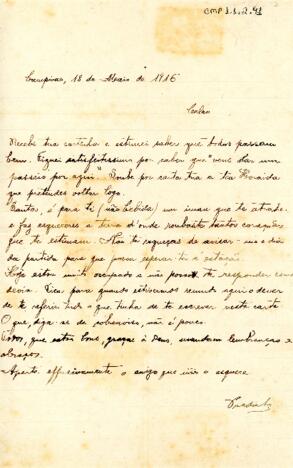 CMP 1.1.2.91
18 de Maio de 1916
Recebi tua cartinha e estimei saber que todos passam
bem. Fiquei satisfeitissimo por saber que "vens dar um
passeio por aqui". Soube por carta tua a tia
que pretendes voltar logo.
Santos, é para ti (não bebida) um iman que te atrahe
e faz esqueceres a terra d'onde tantos corações
que te estimam. Não te esqueças de avisar-me o dia
da partida para que possa esperar-te á estação.
Hoje estou muito occupado e não posso te responder como
devia. Fica para quando estivermos reunidos aqui o dever
de te referir tudo o que tinha de te escrever nesta carta
O que, diga-se de , não é pouco.
Todos, que estão bons, graças á Deus, mandam lembranças e
abraços.
Aperta effusivamente o amigo que não o esquece